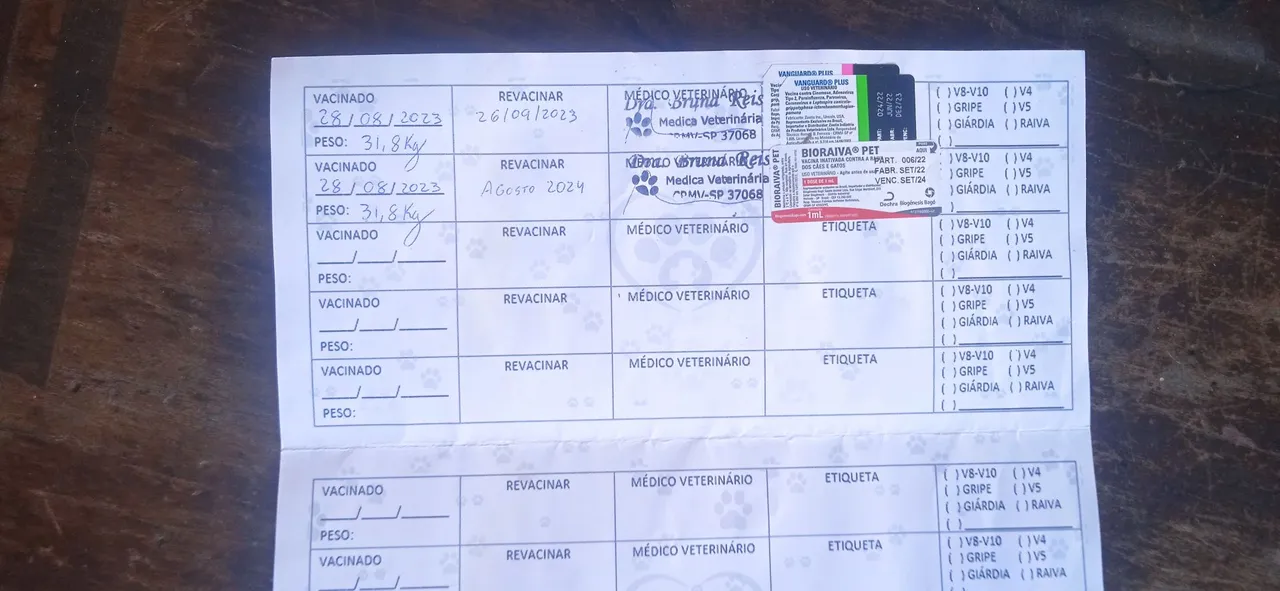 VACINADO
28/08/2023
PESO: 31,8Kg
REVACINAR
26/09/2023
MÉDICO VETERINÁRIO
Dra. Bruna Reis
Medica Veterinária
CRMV-SP 37068
VANGUARD® PLUS
VANGUARD® PLUS
USO VETERINÁRIO
Vacina contra Cinomose, Adenovírus
Tipo 2, Parainfluenza, Parvovírus,
024/22
JUN/22
DEZ/23
( ) V8-V10 ( ) V4
( ) GRIPE ( ) V5
( ) GIÁRDIA ( ) RAIVA
VACINADO
28/08/2023
PESO: 31,8Kg
REVACINAR
AGOSTO 2024
MÉDICO VETERINÁRIO
Dra. Bruna Reis
Medica Veterinária
CRMV-SP 37068
BIORAIVA® PET
BIORAIVA® PET
VACINA INATIVADA CONTRA A RAIVA
DOS CÃES E GATOS
USO VETERINÁRIO - Agite antes de usar
1 DOSE DE 1 mL
PART. 006/22
FABR. SET/22
VENC. SET/24
Dechra Biogénesis Bagó
1mL
( ) V8-V10 ( ) V4
( ) GRIPE ( ) V5
( ) GIÁRDIA ( ) RAIVA
( )
VACINADO
___/___/_____
PESO:
REVACINAR
MÉDICO VETERINÁRIO
ETIQUETA
( ) V8-V10 ( ) V4
( ) GRIPE ( ) V5
( ) GIÁRDIA ( ) RAIVA
( )
VACINADO
___/___/_____
PESO:
REVACINAR
MÉDICO VETERINÁRIO
ETIQUETA
( ) V8-V10 ( ) V4
( ) GRIPE ( ) V5
( ) GIÁRDIA ( ) RAIVA
( )
VACINADO
___/___/_____
PESO:
REVACINAR
MÉDICO VETERINÁRIO
ETIQUETA
( ) V8-V10 ( ) V4
( ) GRIPE ( ) V5
( ) GIÁRDIA ( ) RAIVA
( )
VACINADO
___/___/_____
PESO:
REVACINAR
MÉDICO VETERINÁRIO
ETIQUETA
( ) V8-V10 ( ) V4
( ) GRIPE ( ) V5
( ) GIÁRDIA ( ) RAIVA
( )
VACINADO
___/___/_____
REVACINAR
MÉDICO VETERINÁRIO
ETIQUETA
( ) V8-V10 ( ) V4
( ) GRIPE ( ) V5
( ) GIÁRDIA ( ) RAIVA